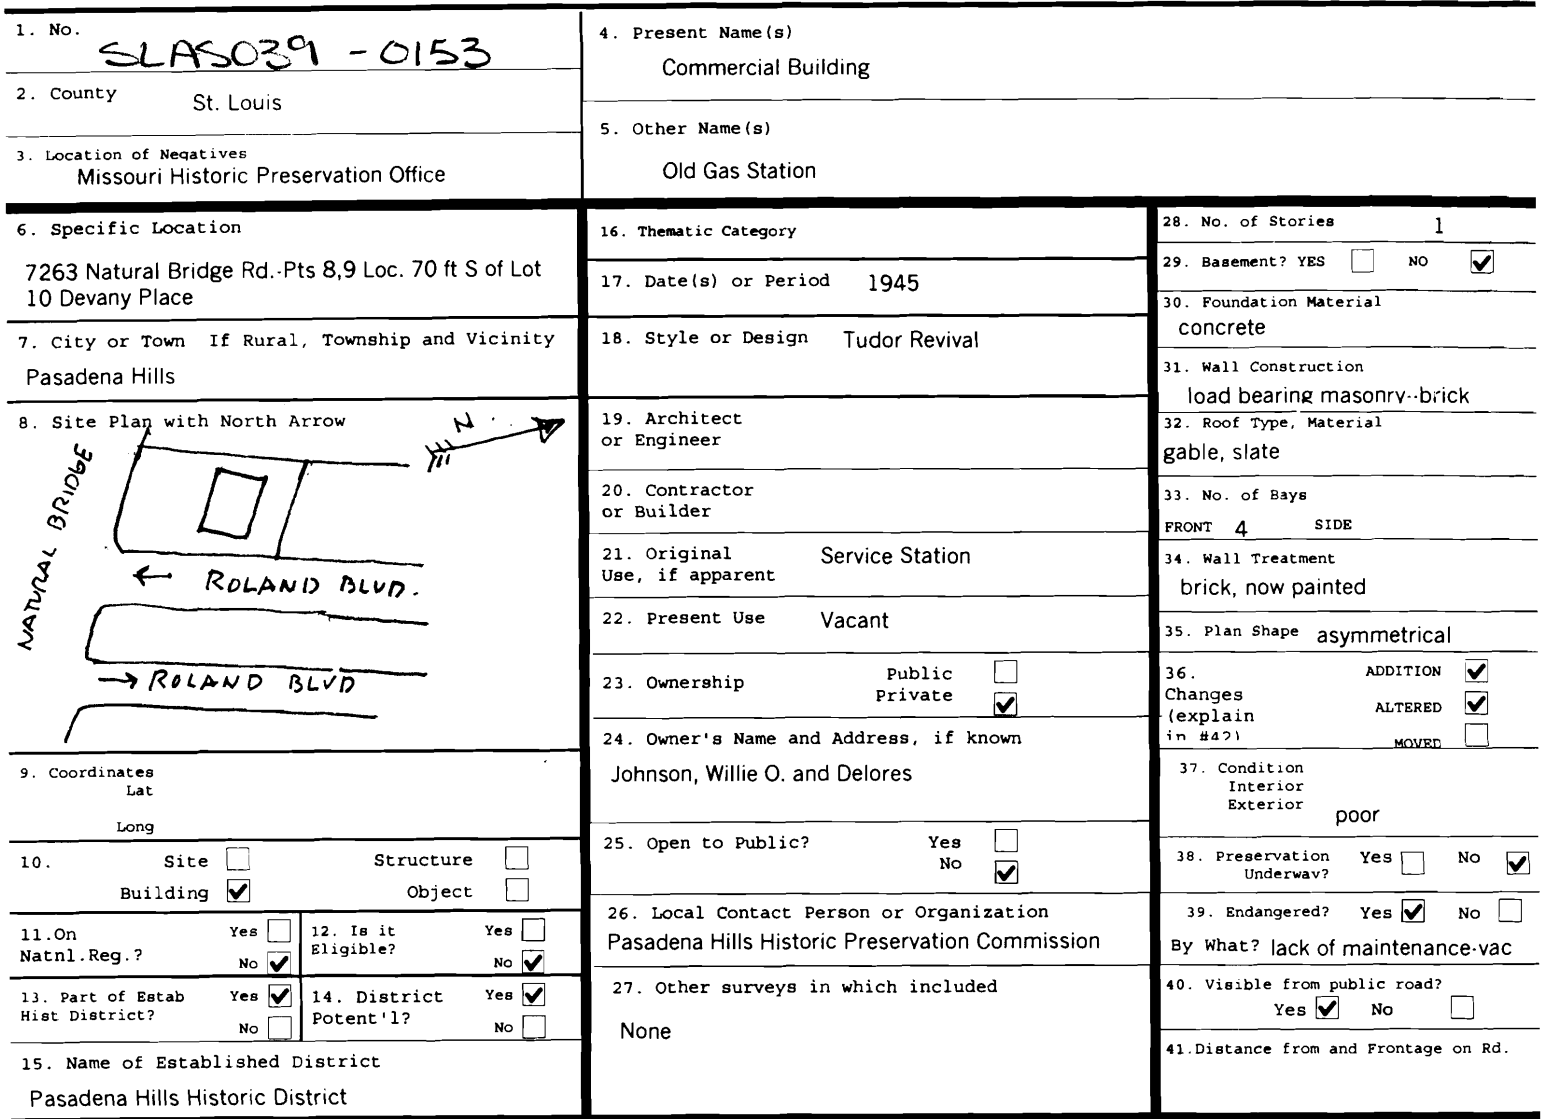 1. No.
SLAS039 - 0153
2. County
St. Louis
3. Location of Negatives
Missouri Historic Preservation Office
4. Present Name(s)
Commercial Building
5. Other Name(s)
Old Gas Station
6. Specific Location
7263 Natural Bridge Rd.-Pts 8,9 Loc. 70 ft S of Lot
10 Devany Place
7. City or Town If Rural, Township and Vicinity
Pasadena Hills
8. Site Plan with North Arrow
N
NATURAL BRIDGE
← ROLAND BLVD.
→ ROLAND BLVD
9. Coordinates
Lat
Long
10. Site Structure
Building ✔ Object
11.On Natnl.Reg.? Yes No ✔
12. Is it Eligible? Yes No ✔
13. Part of Estab Hist District? Yes ✔ No
14. District Potent'l? Yes ✔ No
15. Name of Established District
Pasadena Hills Historic District
16. Thematic Category
17. Date(s) or Period 1945
18. Style or Design Tudor Revival
19. Architect
or Engineer
20. Contractor
or Builder
21. Original Service Station
Use, if apparent
22. Present Use Vacant
23. Ownership Public
Private ✔
24. Owner's Name and Address, if known
Johnson, Willie O. and Delores
25. Open to Public? Yes
No ✔
26. Local Contact Person or Organization
Pasadena Hills Historic Preservation Commission
27. Other surveys in which included
None
28. No. of Stories 1
29. Basement? YES NO ✔
30. Foundation Material
concrete
31. Wall Construction
load bearing masonry--brick
32. Roof Type, Material
gable, slate
33. No. of Bays
FRONT 4 SIDE
34. Wall Treatment
brick, now painted
35. Plan Shape asymmetrical
36. ADDITION ✔
Changes
(explain ALTERED ✔
in #42)
MOVED
37. Condition
Interior
Exterior poor
38. Preservation Yes No ✔
Underway?
39. Endangered? Yes ✔ No
By What? lack of maintenance-vac
40. Visible from public road?
Yes ✔ No
41.Distance from and Frontage on Rd.